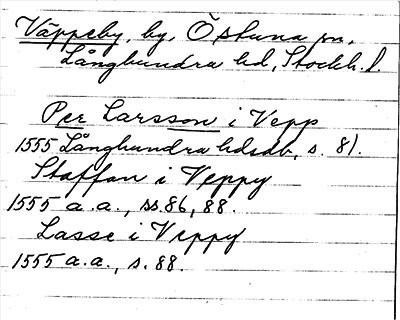 Väppeby, by, Östuna sn,
Långhundra hd, Stockh. l.
Per Larsson i Vepp
1555 Långhundra hdsdb, s. 81.
Staffan i Veppy
1555 a.a., ss. 86, 88.
Lasse i Veppy
1555 a.a., s. 88.